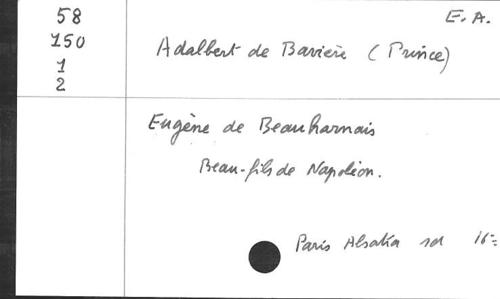 58
E. A.
150
Adalbert de Bavière (Prince)
1
2
Eugène de Beauharnais
Beau-fils de Napoléon.
Paris Alsatia sd 16=